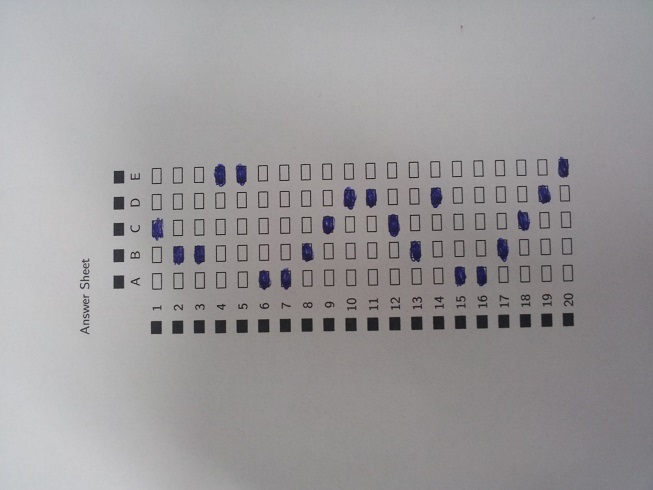 Answer Sheet
A B C D E
1
2
3
4
5
6
7
8
9
10
11
12
13
14
15
16
17
18
19
20